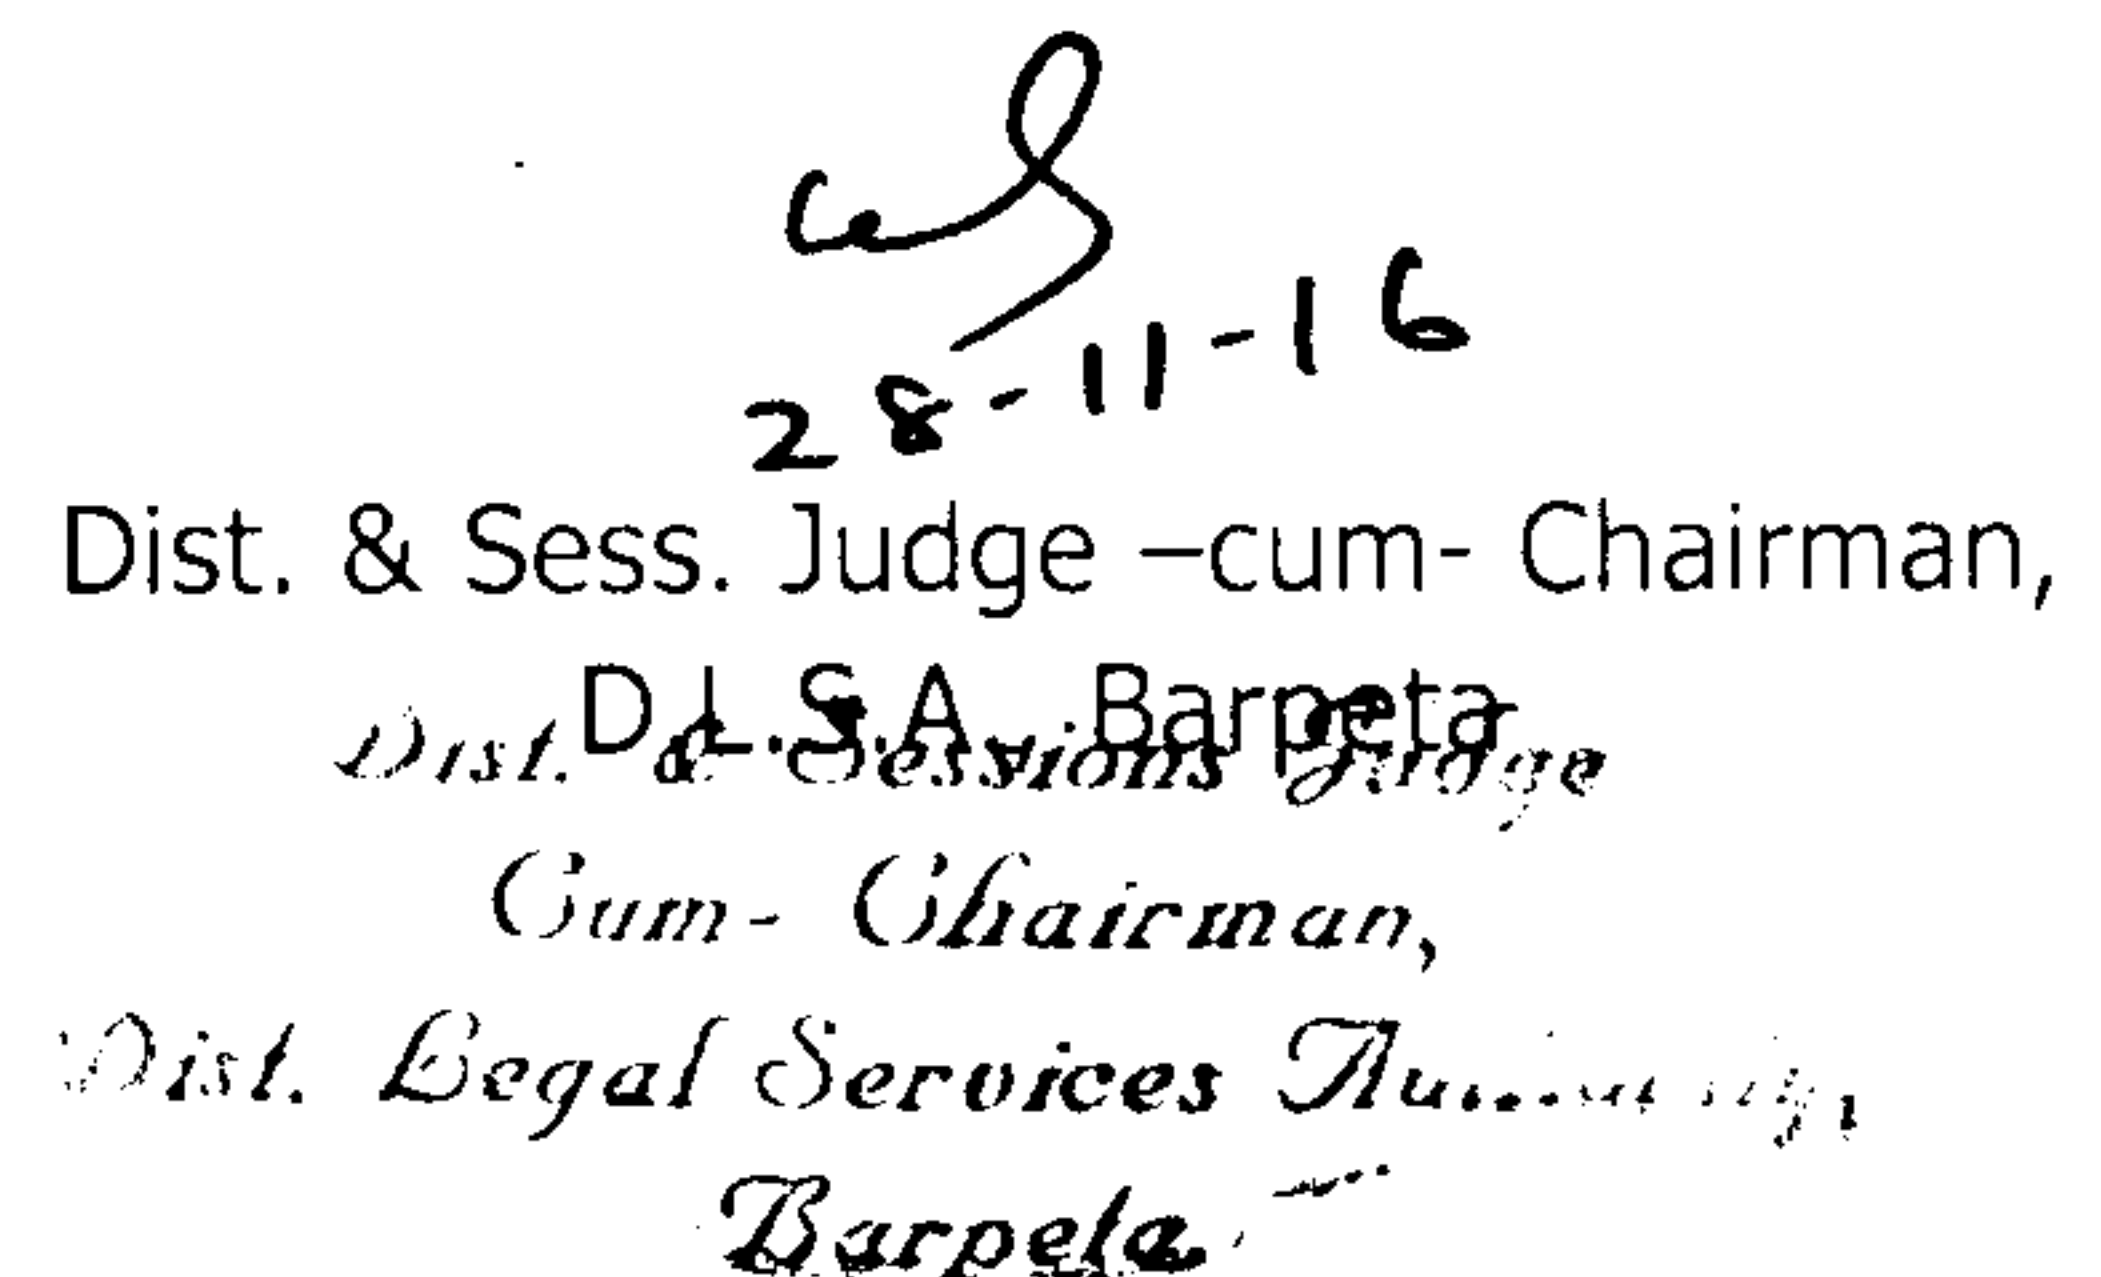 28-11-16
Dist. & Sess. Judge –cum- Chairman,
D.L.S.A., Barpeta
Dist. & Sessions Judge
Cum- Chairman,
Dist. Legal Services
Barpeta